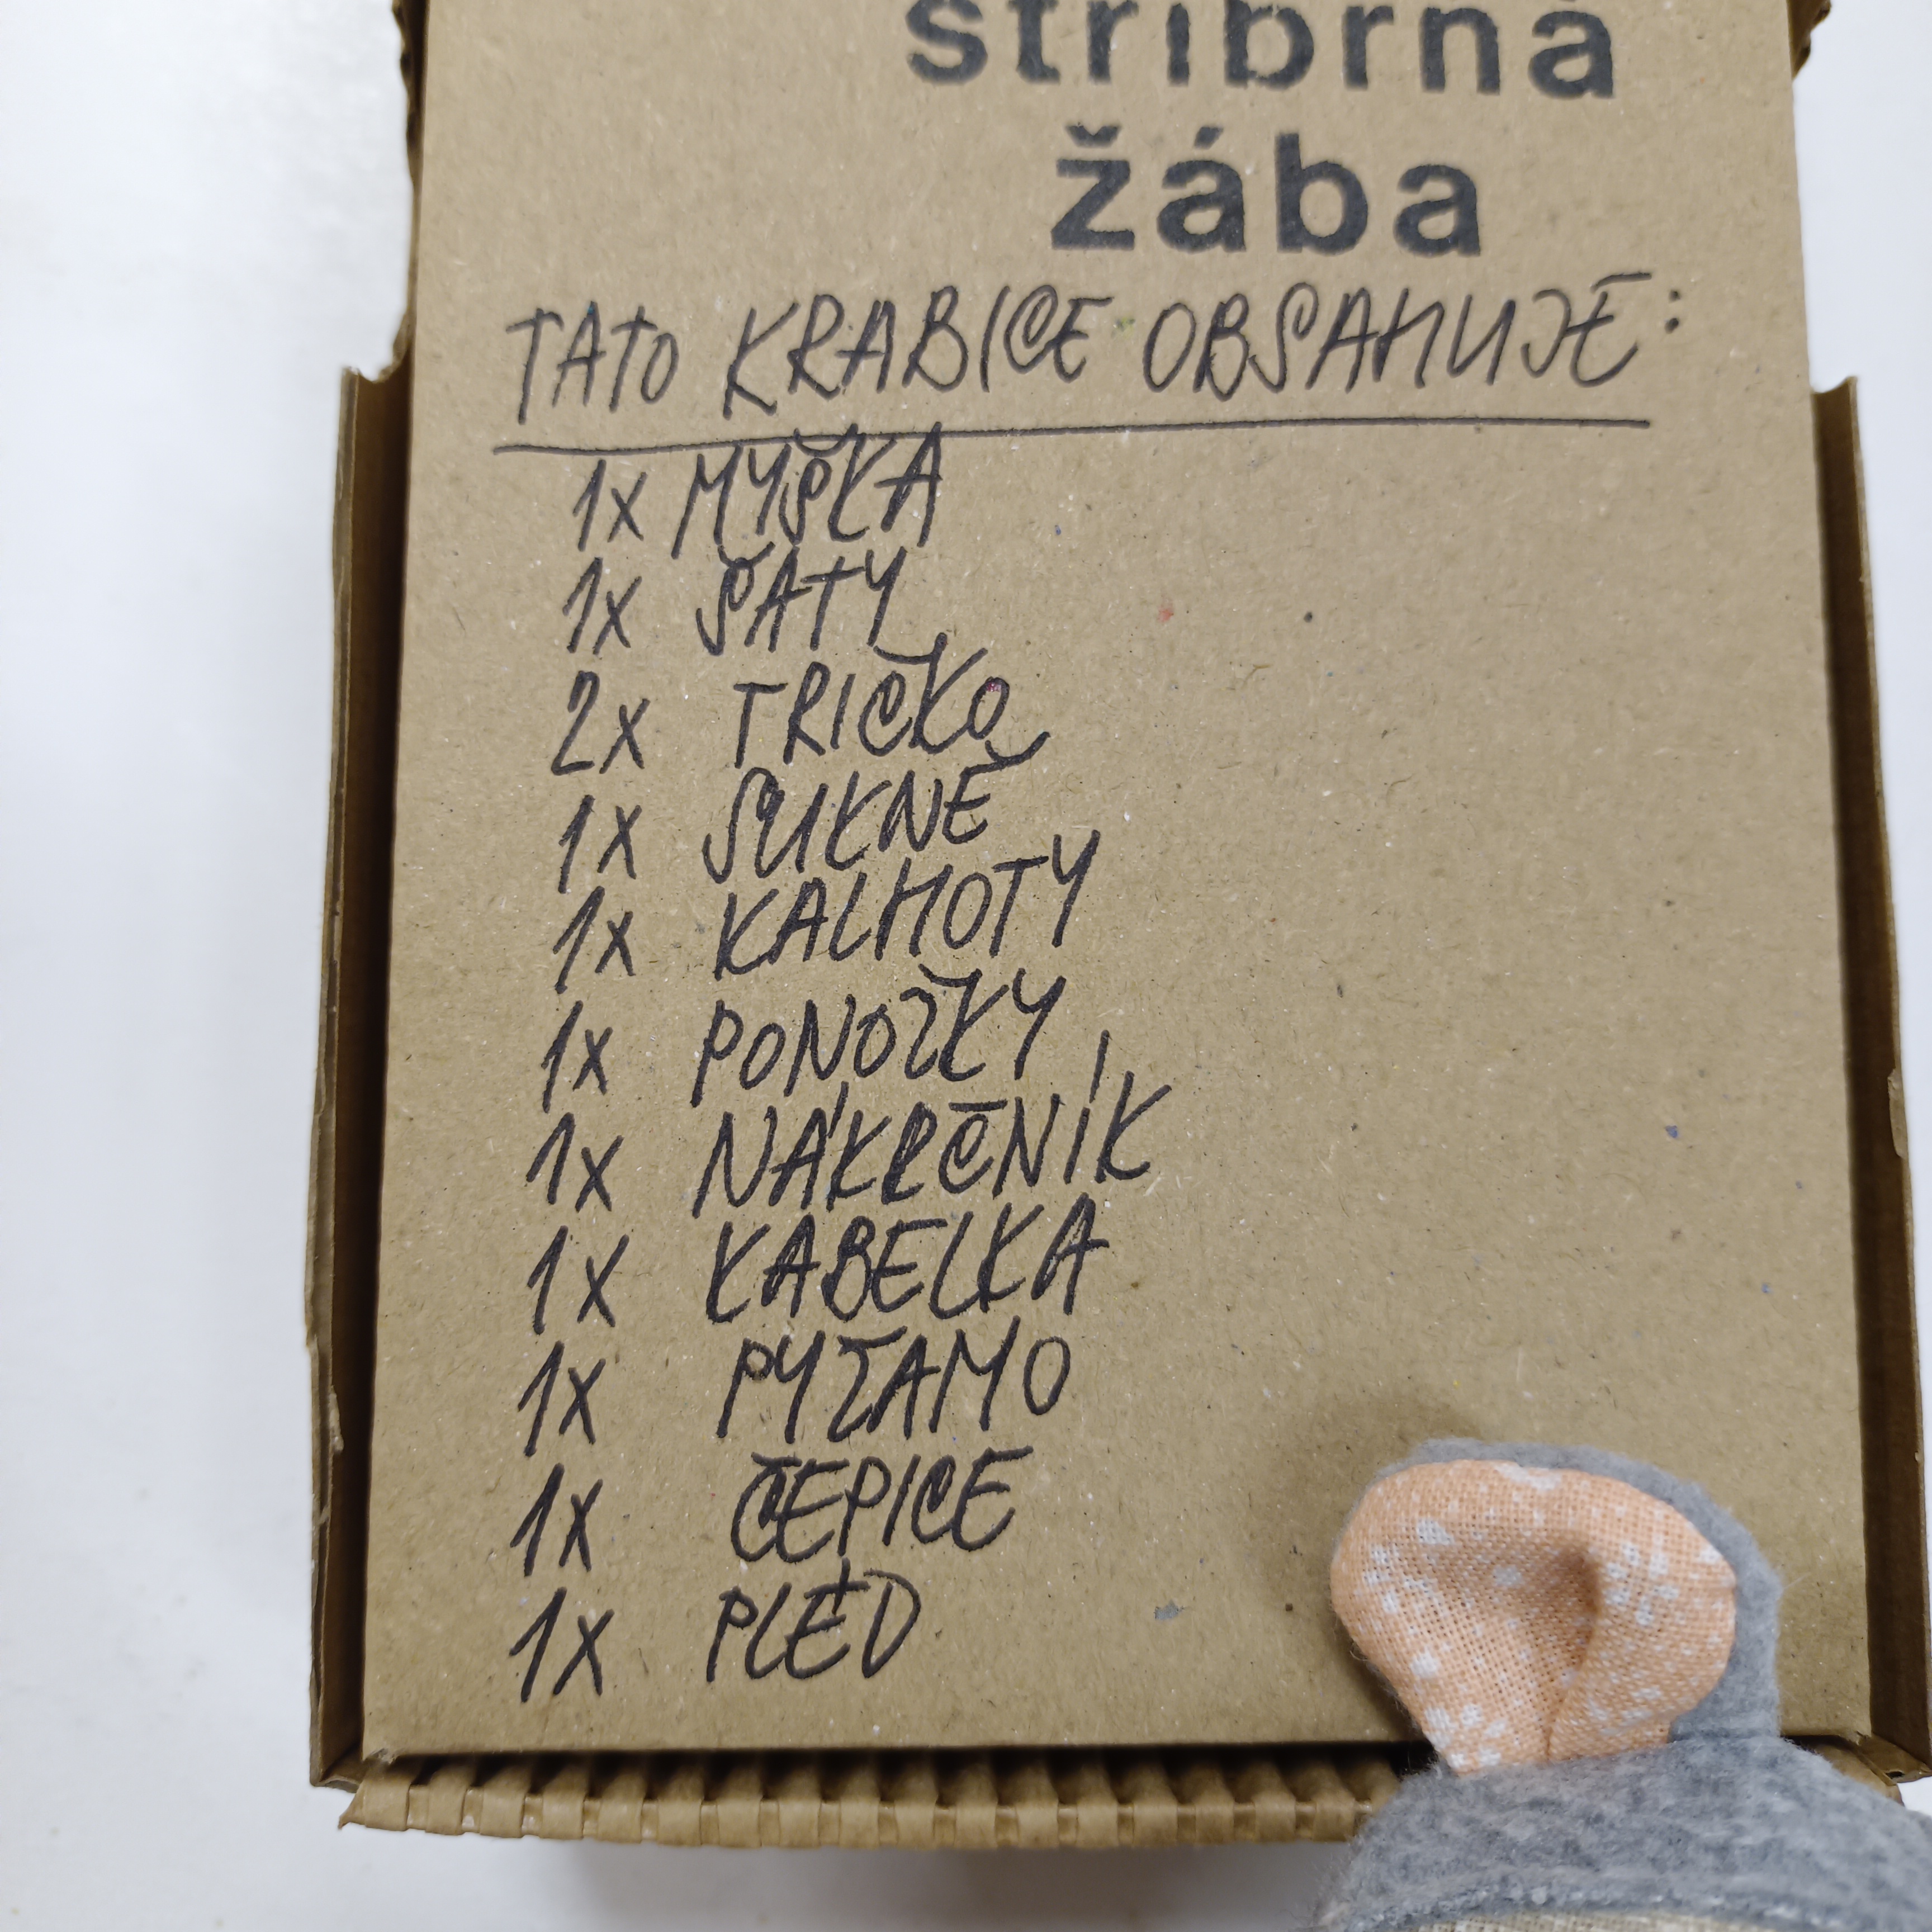 stříbrná
žába
TATO KRABICE OBSAHUJE:
1x MYŠKA
1x ŠATY
2x TRIČKO
1x SUKNĚ
1x KALHOTY
1x PONOŽKY
1x NÁKRČNÍK
1x KABELKA
1x PYŽAMO
1x ČEPICE
1x PLÉD